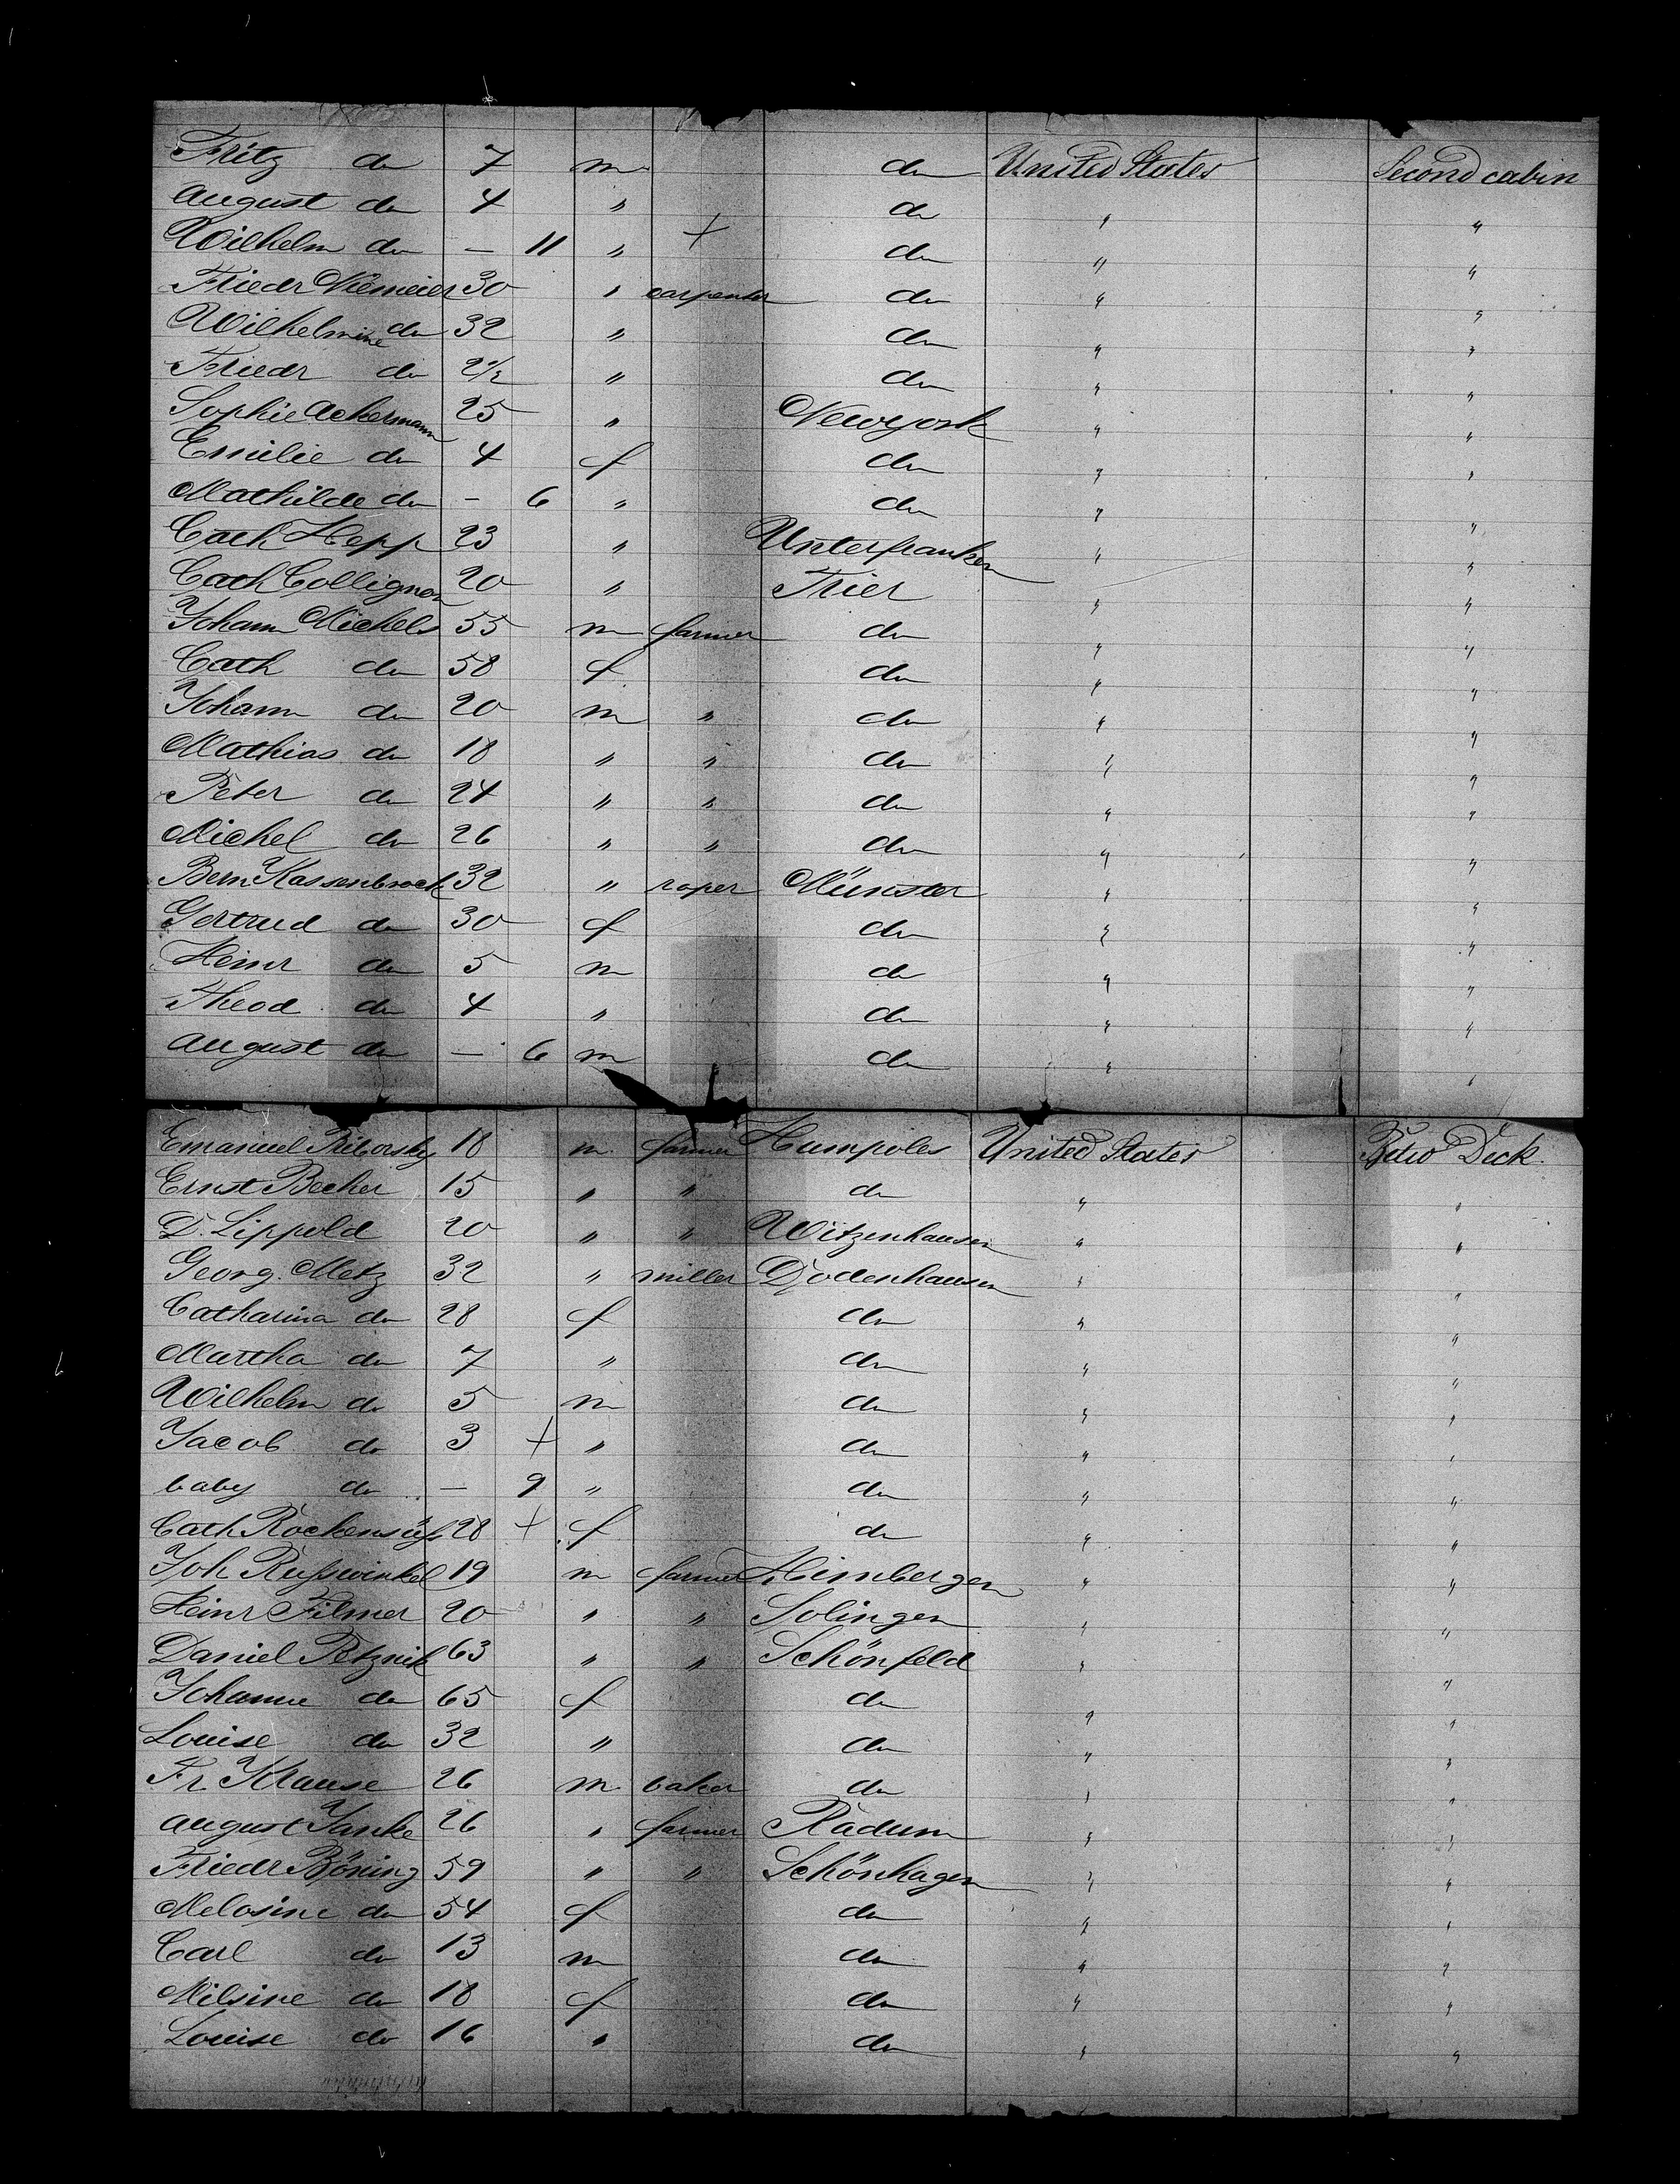 Fritz do 7 m do United States Second cabin
August do 4 " do " "
Wilhelm do — 11 " + do " "
Friedr Niemeier 30 " carpenter do " "
Wilhelmine do 32 " do " "
Friedr do 2½ " do " "
Sophie Ackermann 25 " Newyork " "
Emilie do 4 f do " "
Mathilde do — 6 " do " "
Cath Hepp 23 " Unterfranken " "
Cath Collignon 20 " Trier " "
Johann Michels 55 m farmer do " "
Cath do 58 f do " "
Johann do 20 m " do " "
Mathias do 18 " " do " "
Peter do 24 " " do " "
Michel do 26 " " do " "
Bern Kassenbrock 32 " roper Münster " "
Gertrud do 30 f do " "
Heinr do 5 m do " "
Theod do 4 " do " "
August do — 6 m do " "
Emanuel Priborsky 18 m farmer Humpoles United States Betw Deck
Ernst Becher 15 " " do " "
D. Lippold 20 " " Witzenhausen " "
Georg Metz 32 " miller Dodenhausen " "
Catharina do 28 f do " "
Martha do 7 " do " "
Wilhelm do 5 m do " "
Jacob do 3 + " do " "
baby do — 9 " do " "
Cath Rockensüß 28 + f do " "
Joh Rußwinkel 19 m farmer Himbergen " "
Heinr Filmer 20 " " Solingen " "
Daniel Petznik 63 " " Schönfeld " "
Johanne do 65 f do " "
Louise do 32 " do " "
Fr Krause 26 m baker do " "
August Janke 26 " farmer Radum " "
Friedr Böning 59 " " Schönhagen " "
Melosine do 54 f do " "
Carl do 13 m do " "
Milsine do 18 f do " "
Louise do 16 " do " "